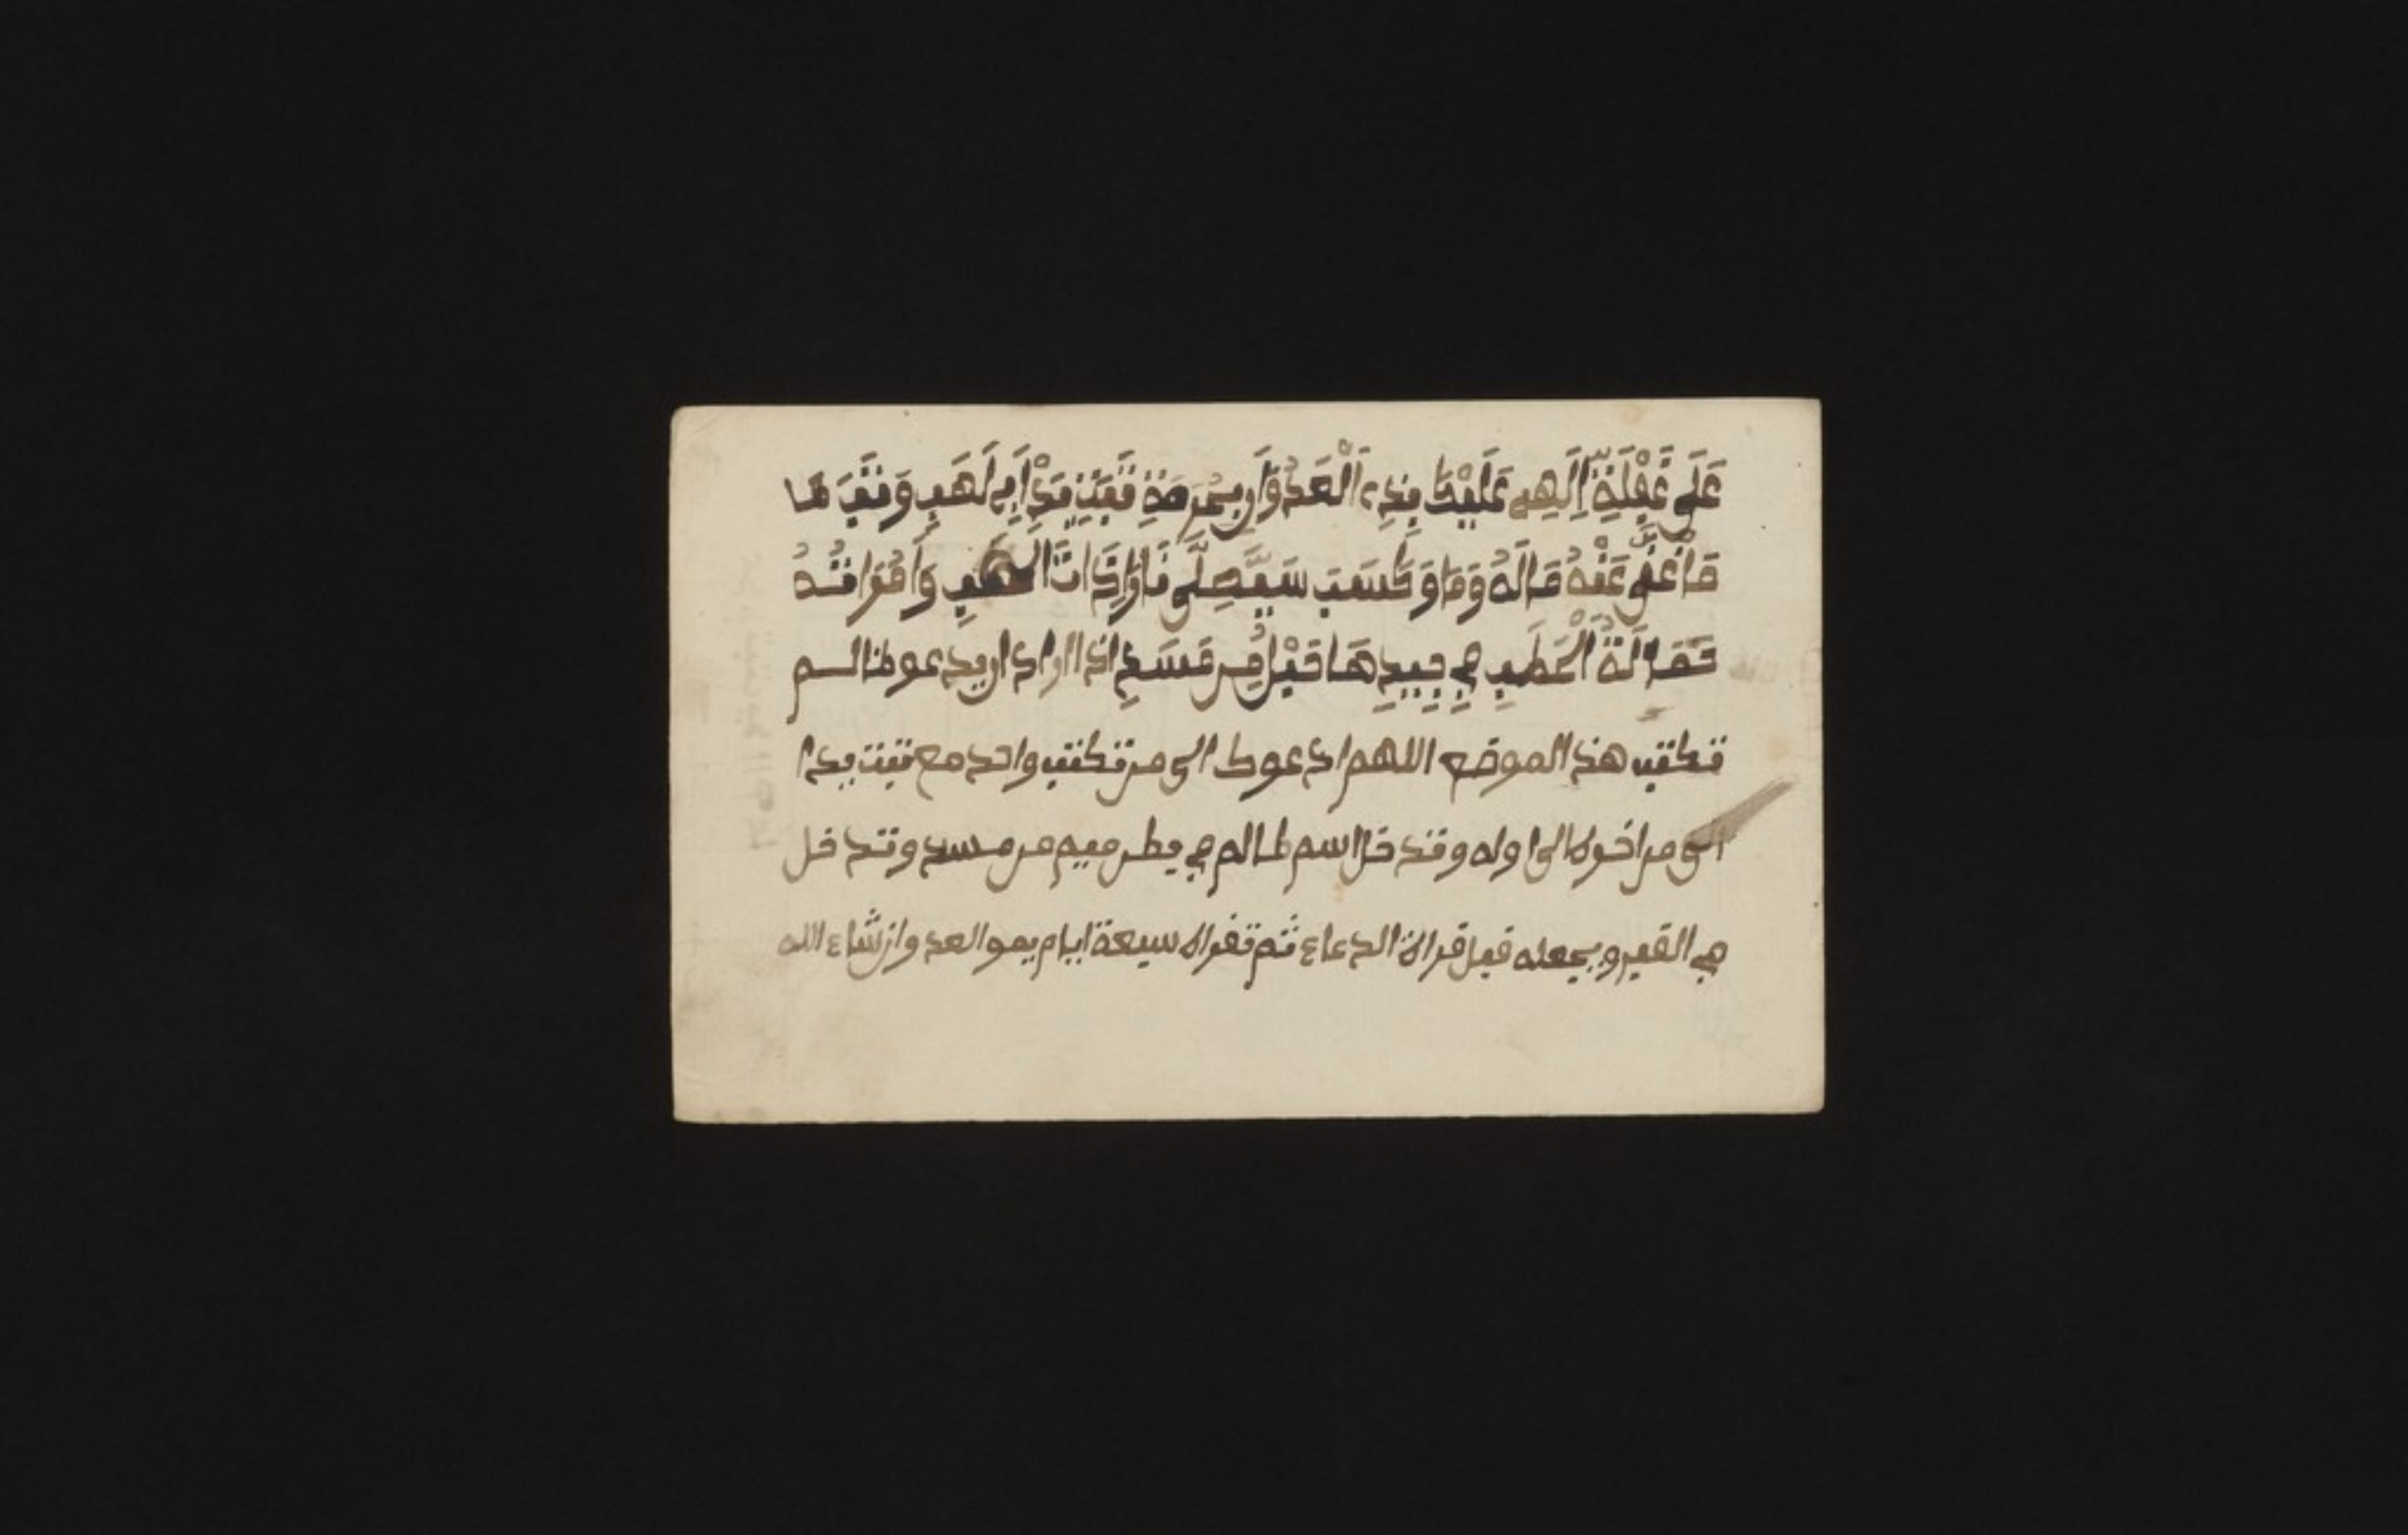 عَلَى غَفْلَةٍ اِلَهِى عَلَيْكَ بِذِ الْعَدُوِّ بِحُرْمَةِ تَبَّتْ يَدَ اَبِي لَهَبٍ وَتَبَّ مَا
مَا اَغْنَى عَنْهُ مَالَهُ وَمَا وَكَسَبَ سَيَصْلَى نَارًا ذَاتَ الَهَبِ وَامْرَاتُهُ
حَمَالَةُ الْحَطَبِ فِي جِيدِهَا حَبْلٌ مِن مَسَدٍ اذا اراد اريد عو طالسم
تكتب هذ الموضع اللهم ادعوك الى من تكتب واحد مع تبت يدا
الى من اخره الى اوله وتد خل اسم طالم في بطن ميم من مسد وتد خل
في القبر ويجعله قبل قراة الدعاء ثم تقراه سبعة ايام يمو العد وان شاء الله